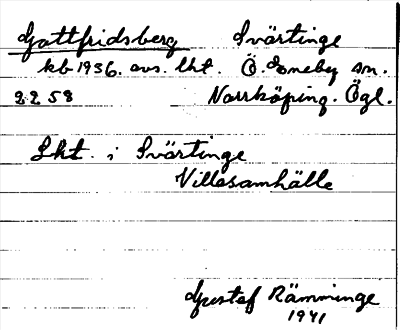 Gottfridsberg Svärtinge
kb 1936. avs. lht. Ö. Eneby sn.
2 2 58 Norrköping. Ögl.
Lht. i Svärtinge
Villasamhälle
Gustaf Rämminge
1941